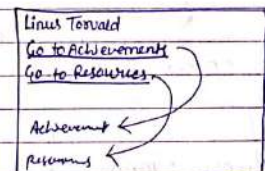 Linus Torvald
Go to Achievements
Go to Resources
Achievement
Resources